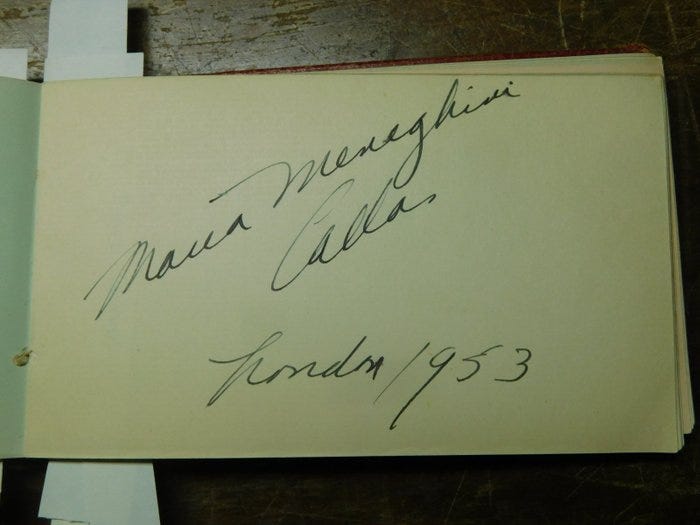 Maria Meneghini
Callas
London 1953